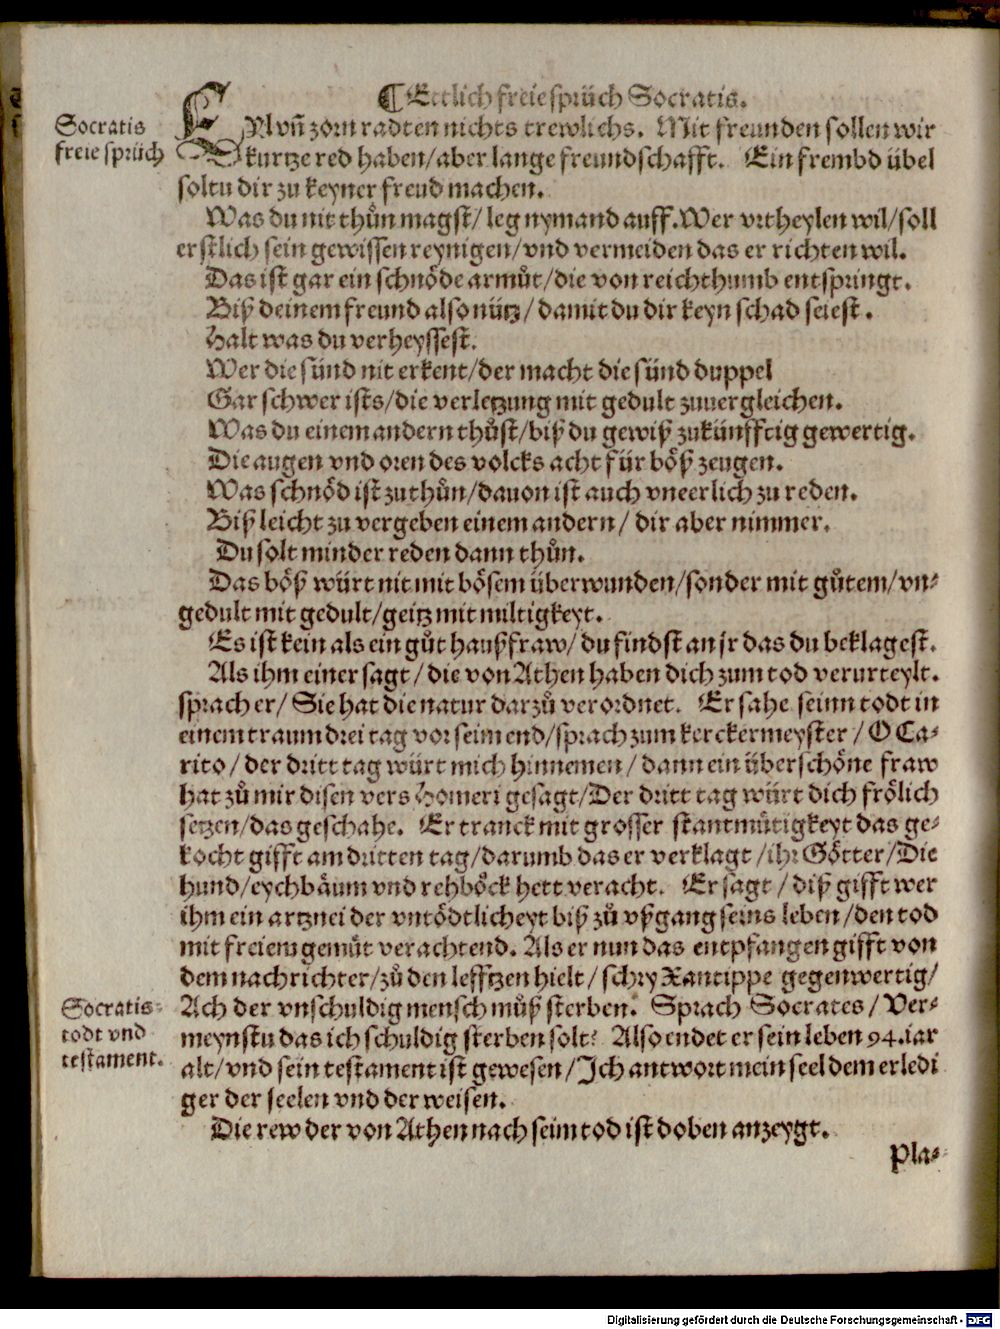 ¶ Ettlich freie sprüch Socratis.
Socratis
freie sprüch
EYl vñ zorn radten nichts trewlichs. Mit freunden sollen wir
kurtze red haben/aber lange freundschafft. Ein frembd übel
soltu dir zu keyner freud machen.
Was du nit thůn magst/leg nymand auff. Wer vrtheylen wil/soll
erstlich sein gewissen reynigen/vnd vermeiden das er richten wil.
Das ist gar ein schnöde armůt/die von reichthumb entspringt.
Biß deinem freund also nütz/damit du dir keyn schad seiest.
Halt was du verheyssest.
Wer die sünd nit erkent/der macht die sünd duppel
Gar schwer ists/die verletzung mit gedult zuuergleichen.
Was du einem andern thůst/biß du gewiß zukünfftig gewertig.
Die augen vnd oren des volcks acht für böß zeugen.
Was schnöd ist zuthůn/dauon ist auch vneerlich zu reden.
Biß leicht zu vergeben einem andern/dir aber nimmer.
Du solt minder reden dann thůn.
Das böß würt nit mit bösem überwunden/sonder mit gůtem/vn⸗
gedult mit gedult/geitz mit miltigkeyt.
Es ist kein als ein gůt haußfraw/du findst an jr das du beklagest.
Als ihm einer sagt/die von Athen haben dich zum tod verurteylt.
sprach er/Sie hat die natur darzů verordnet. Er sahe seinn todt in
einem traum drei tag vor seim end/sprach zum kerckermeyster/O Ca⸗
rito/der dritt tag würt mich hinnemen/dann ein überschöne fraw
hat zů mir disen vers Homeri gesagt/Der dritt tag würt dich frölich
setzen/das geschahe. Er tranck mit grosser stantmütigkeyt das ge⸗
kocht gifft am dritten tag/darumb das er verklagt/ihr Götter/Die
hund/eychbäum vnd rehböck hett veracht. Er sagt/diß gifft wer
ihm ein artznei der vntödtlicheyt biß zů vßgang seins leben/den tod
mit freiem gemüt verachtend. Als er nun das entpfangen gifft von
dem nachrichter/zů den lefftzen hielt/schry Xantippe gegenwertig/
Socratis
todt vnd
testament.
Ach der vnschuldig mensch můß sterben. Sprach Socrates/Ver⸗
meynstu das ich schuldig sterben solt? Also endet er sein leben 94. iar
alt/vnd sein testament ist gewesen/Ich antwort mein seel dem erledi
ger der seelen vnd der weisen.
Die rew der von Athen nach seim tod ist doben anzeygt.
Pla⸗
Digitalisierung gefördert durch die Deutsche Forschungsgemeinschaft - DFG